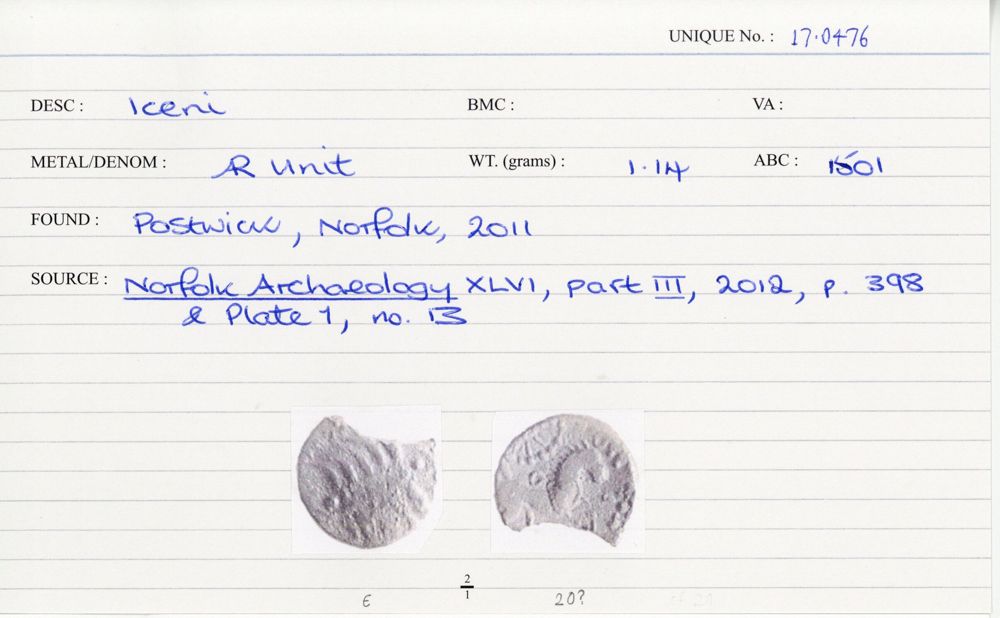 UNIQUE No. : 17·0476
DESC : Iceni BMC : VA :
METAL/DENOM : AR Unit WT. (grams) : 1·14 ABC : 1501
FOUND : Postwick, Norfolk, 2011
SOURCE : Norfolk Archaeology XLVI, part III, 2012, p. 398
& Plate 1, no. 13
2
1
€ 20?